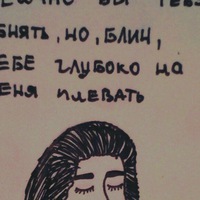 БЫ
БНЯТЬ, НО, БЛИН,
ЕБЕ ГЛУБОКО НА
ЕНЯ ПЛЕВАТЬ